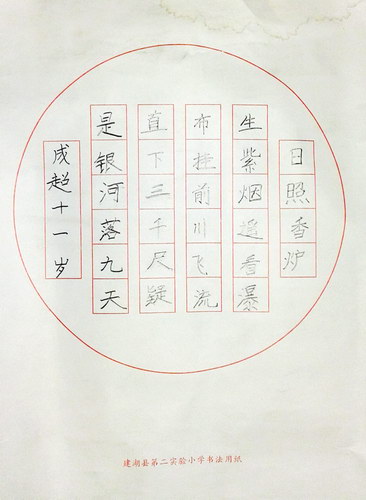 日照香炉
生紫烟遥看瀑
布挂前川飞流
直下三千尺疑
是银河落九天
成超十一岁
建湖县第二实验小学书法用纸